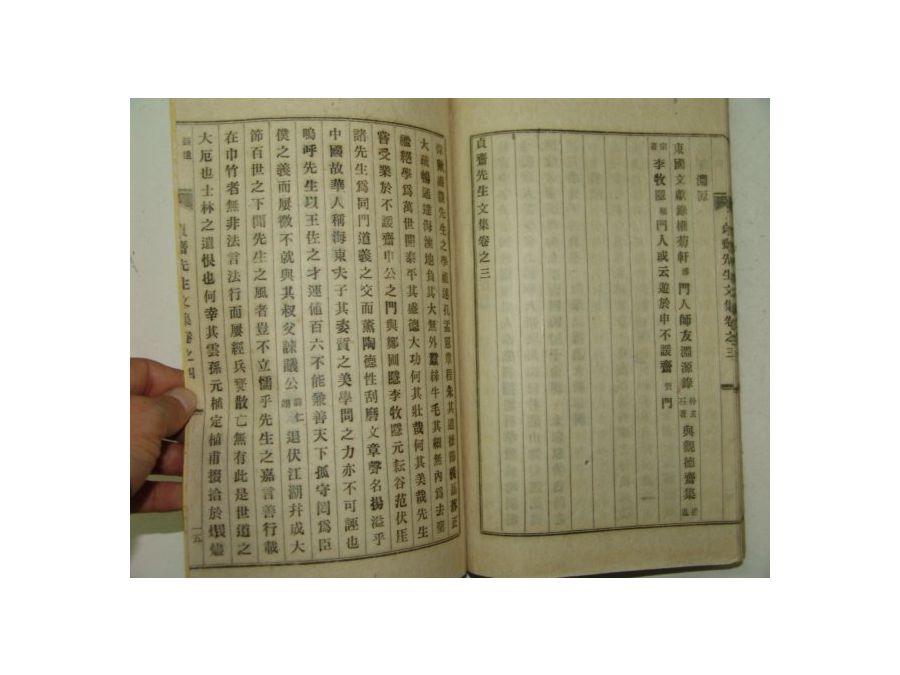 淵源
東國文獻錄權菊軒 門人師友淵源錄 與觀德齋集
李牧隱 門人或云遊於申不諼齋 門
貞齋先生文集卷之三
先生之學 達孔孟 程朱其道德
大疏暢通達海 地負其大無外蠶絲牛毛其細無內為去聖
繼絕學爲萬世開泰平其盛德大功何其壯哉何其美哉先生
嘗受業於不諼齋申公之門與鄭圃隱李牧隱元耘谷范伏厓
諸先生爲同門道義之交而薰陶德性刮磨文章聲名揚溢乎
中國故華人稱海東夫子其姿質之美學問之力亦不可誣也
嗚呼先生以王佐之才運値百六不能兼善天下孤守罔爲臣
僕之義而屢徵不就與其叔父諫議公 退伏江湖幷成大
節百世之下聞先生之風者豈不立懦乎先生之嘉言善行載
在巾竹者無非法言法行而屢經兵燹散亡無有此是世道之
大厄也士林之遺恨也何幸其雲孫元植植甫掇拾於煨燼
貞齋先生文集卷之四